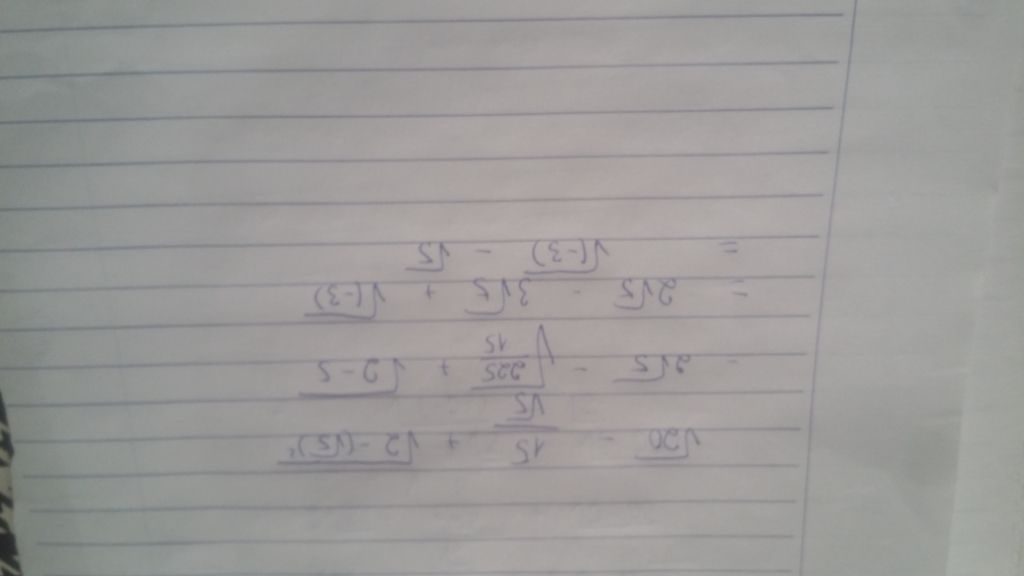 √20 - 15/√5 + √2-(√5)²
= 2√5 - √225/15 + √2-5
= 2√5 - 3√5 + √(-3)
= √(-3) - √5